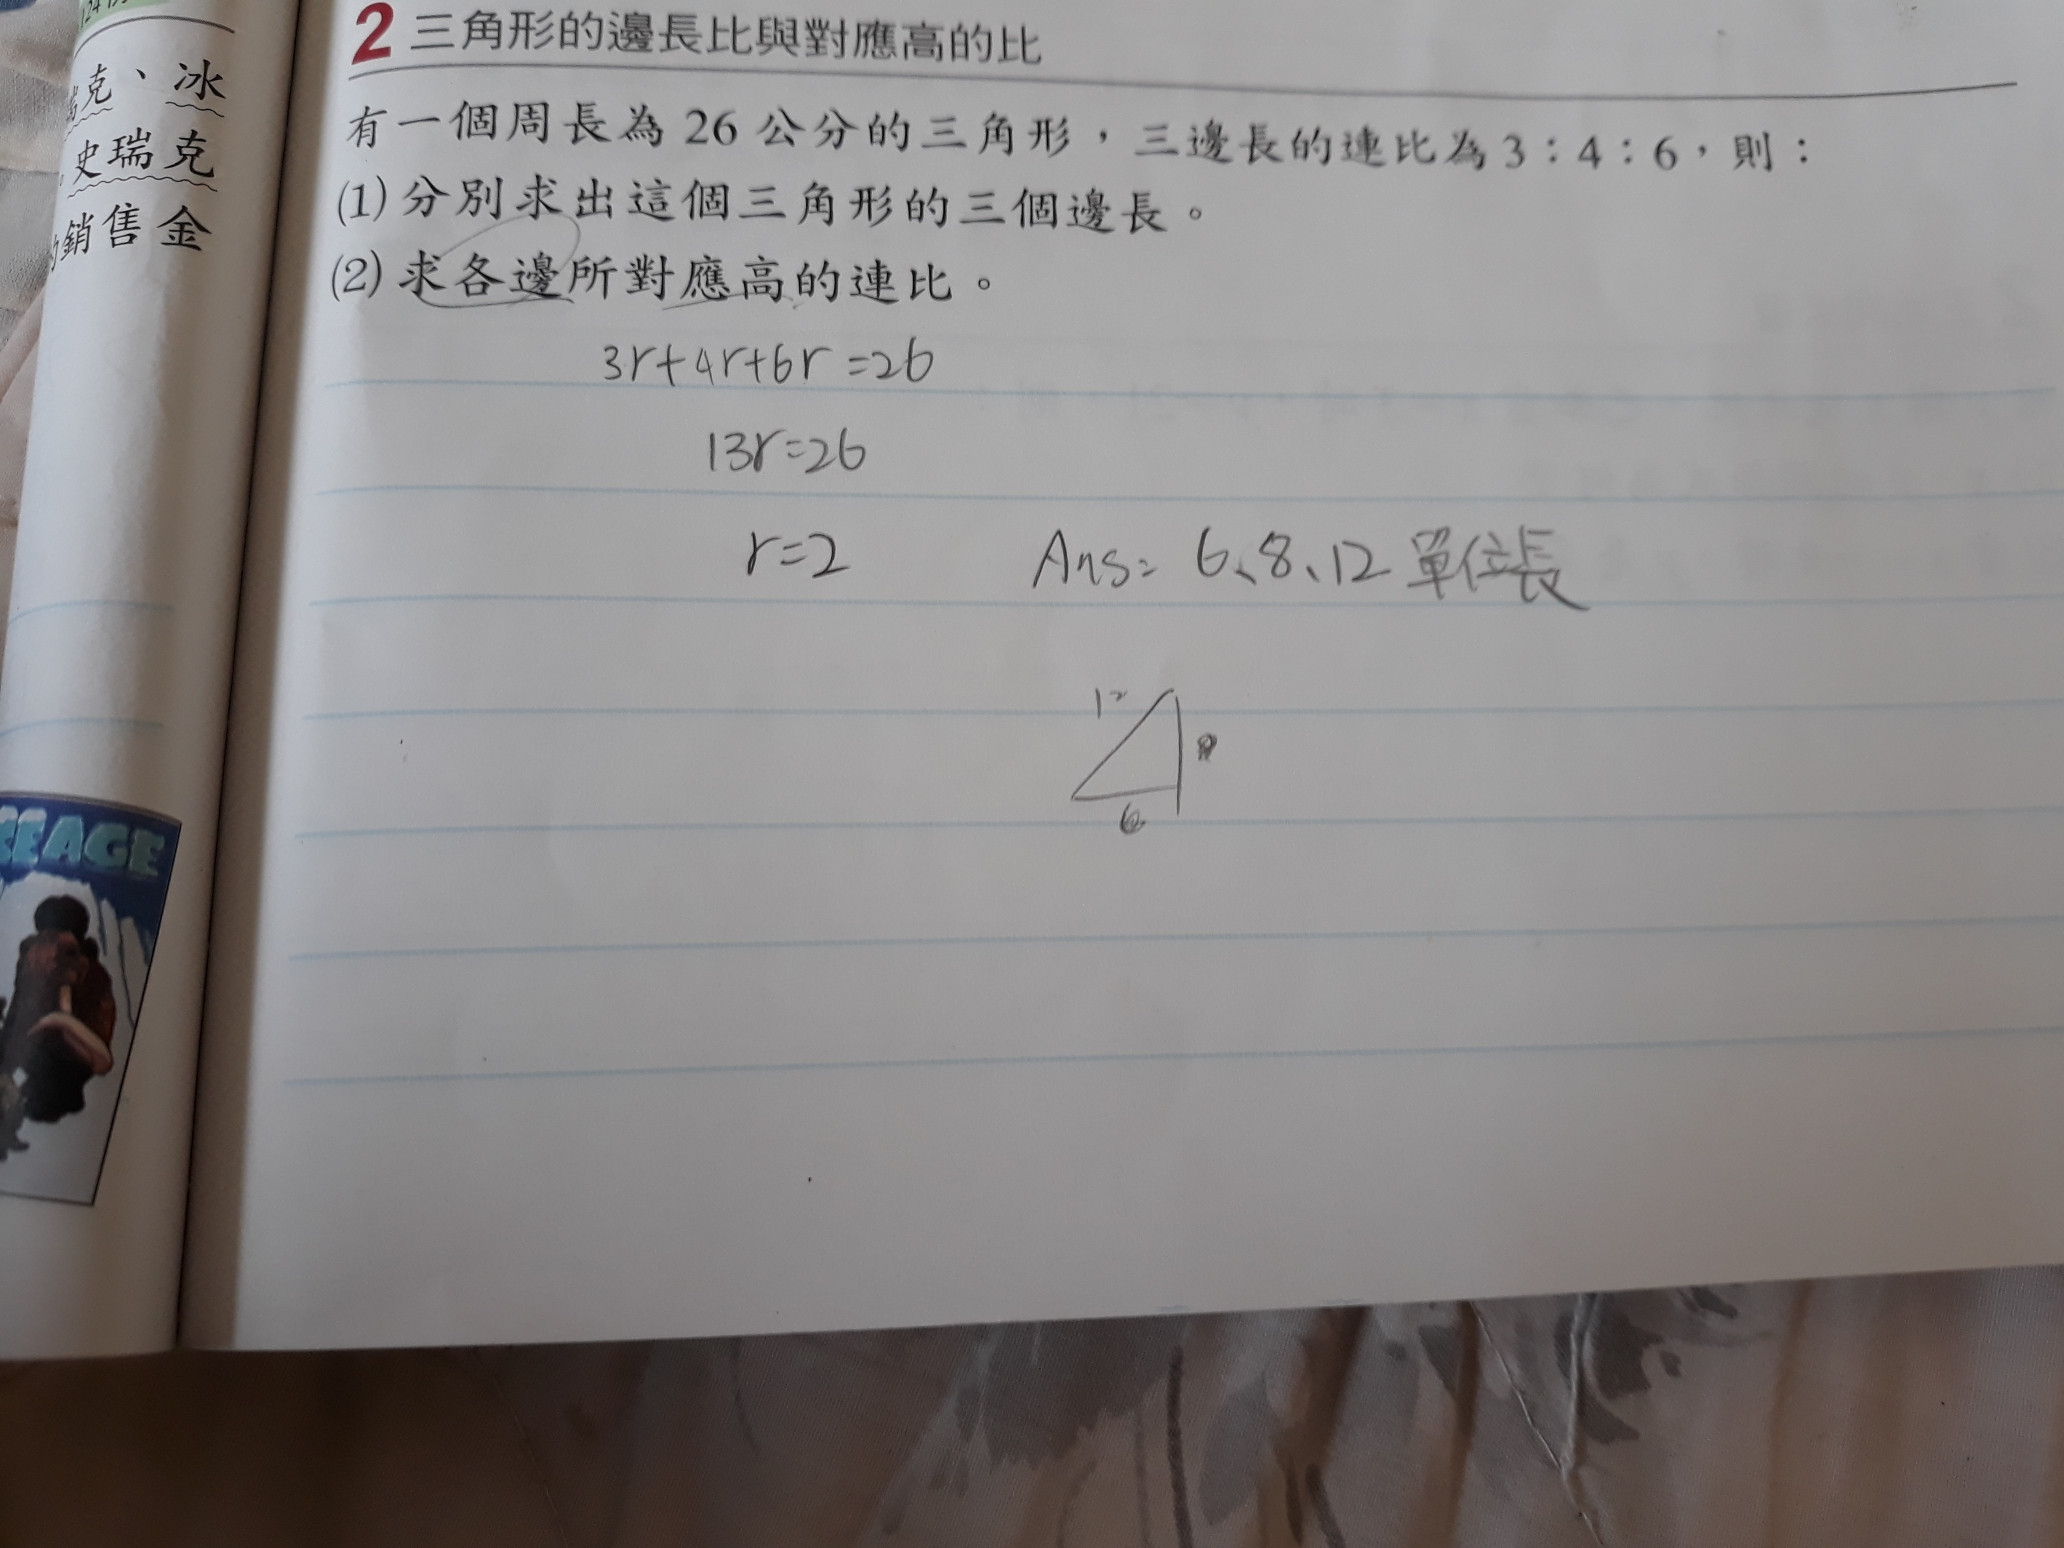 克、冰
史瑞克
銷售金
CEAGE
2 三角形的邊長比與對應高的比
有一個周長為 26 公分的三角形，三邊長的連比為 3：4：6，則：
(1) 分別求出這個三角形的三個邊長。
(2) 求各邊所對應高的連比。
3r+4r+6r=26
13r=26
r=2 Ans= 6、8、12 單位長
12
6